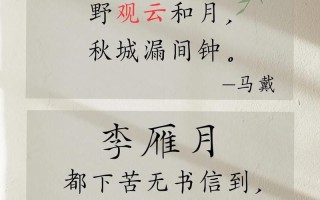 野观云和月，
秋城漏间钟。
–马戴
李雁月
都下苦无书信到，